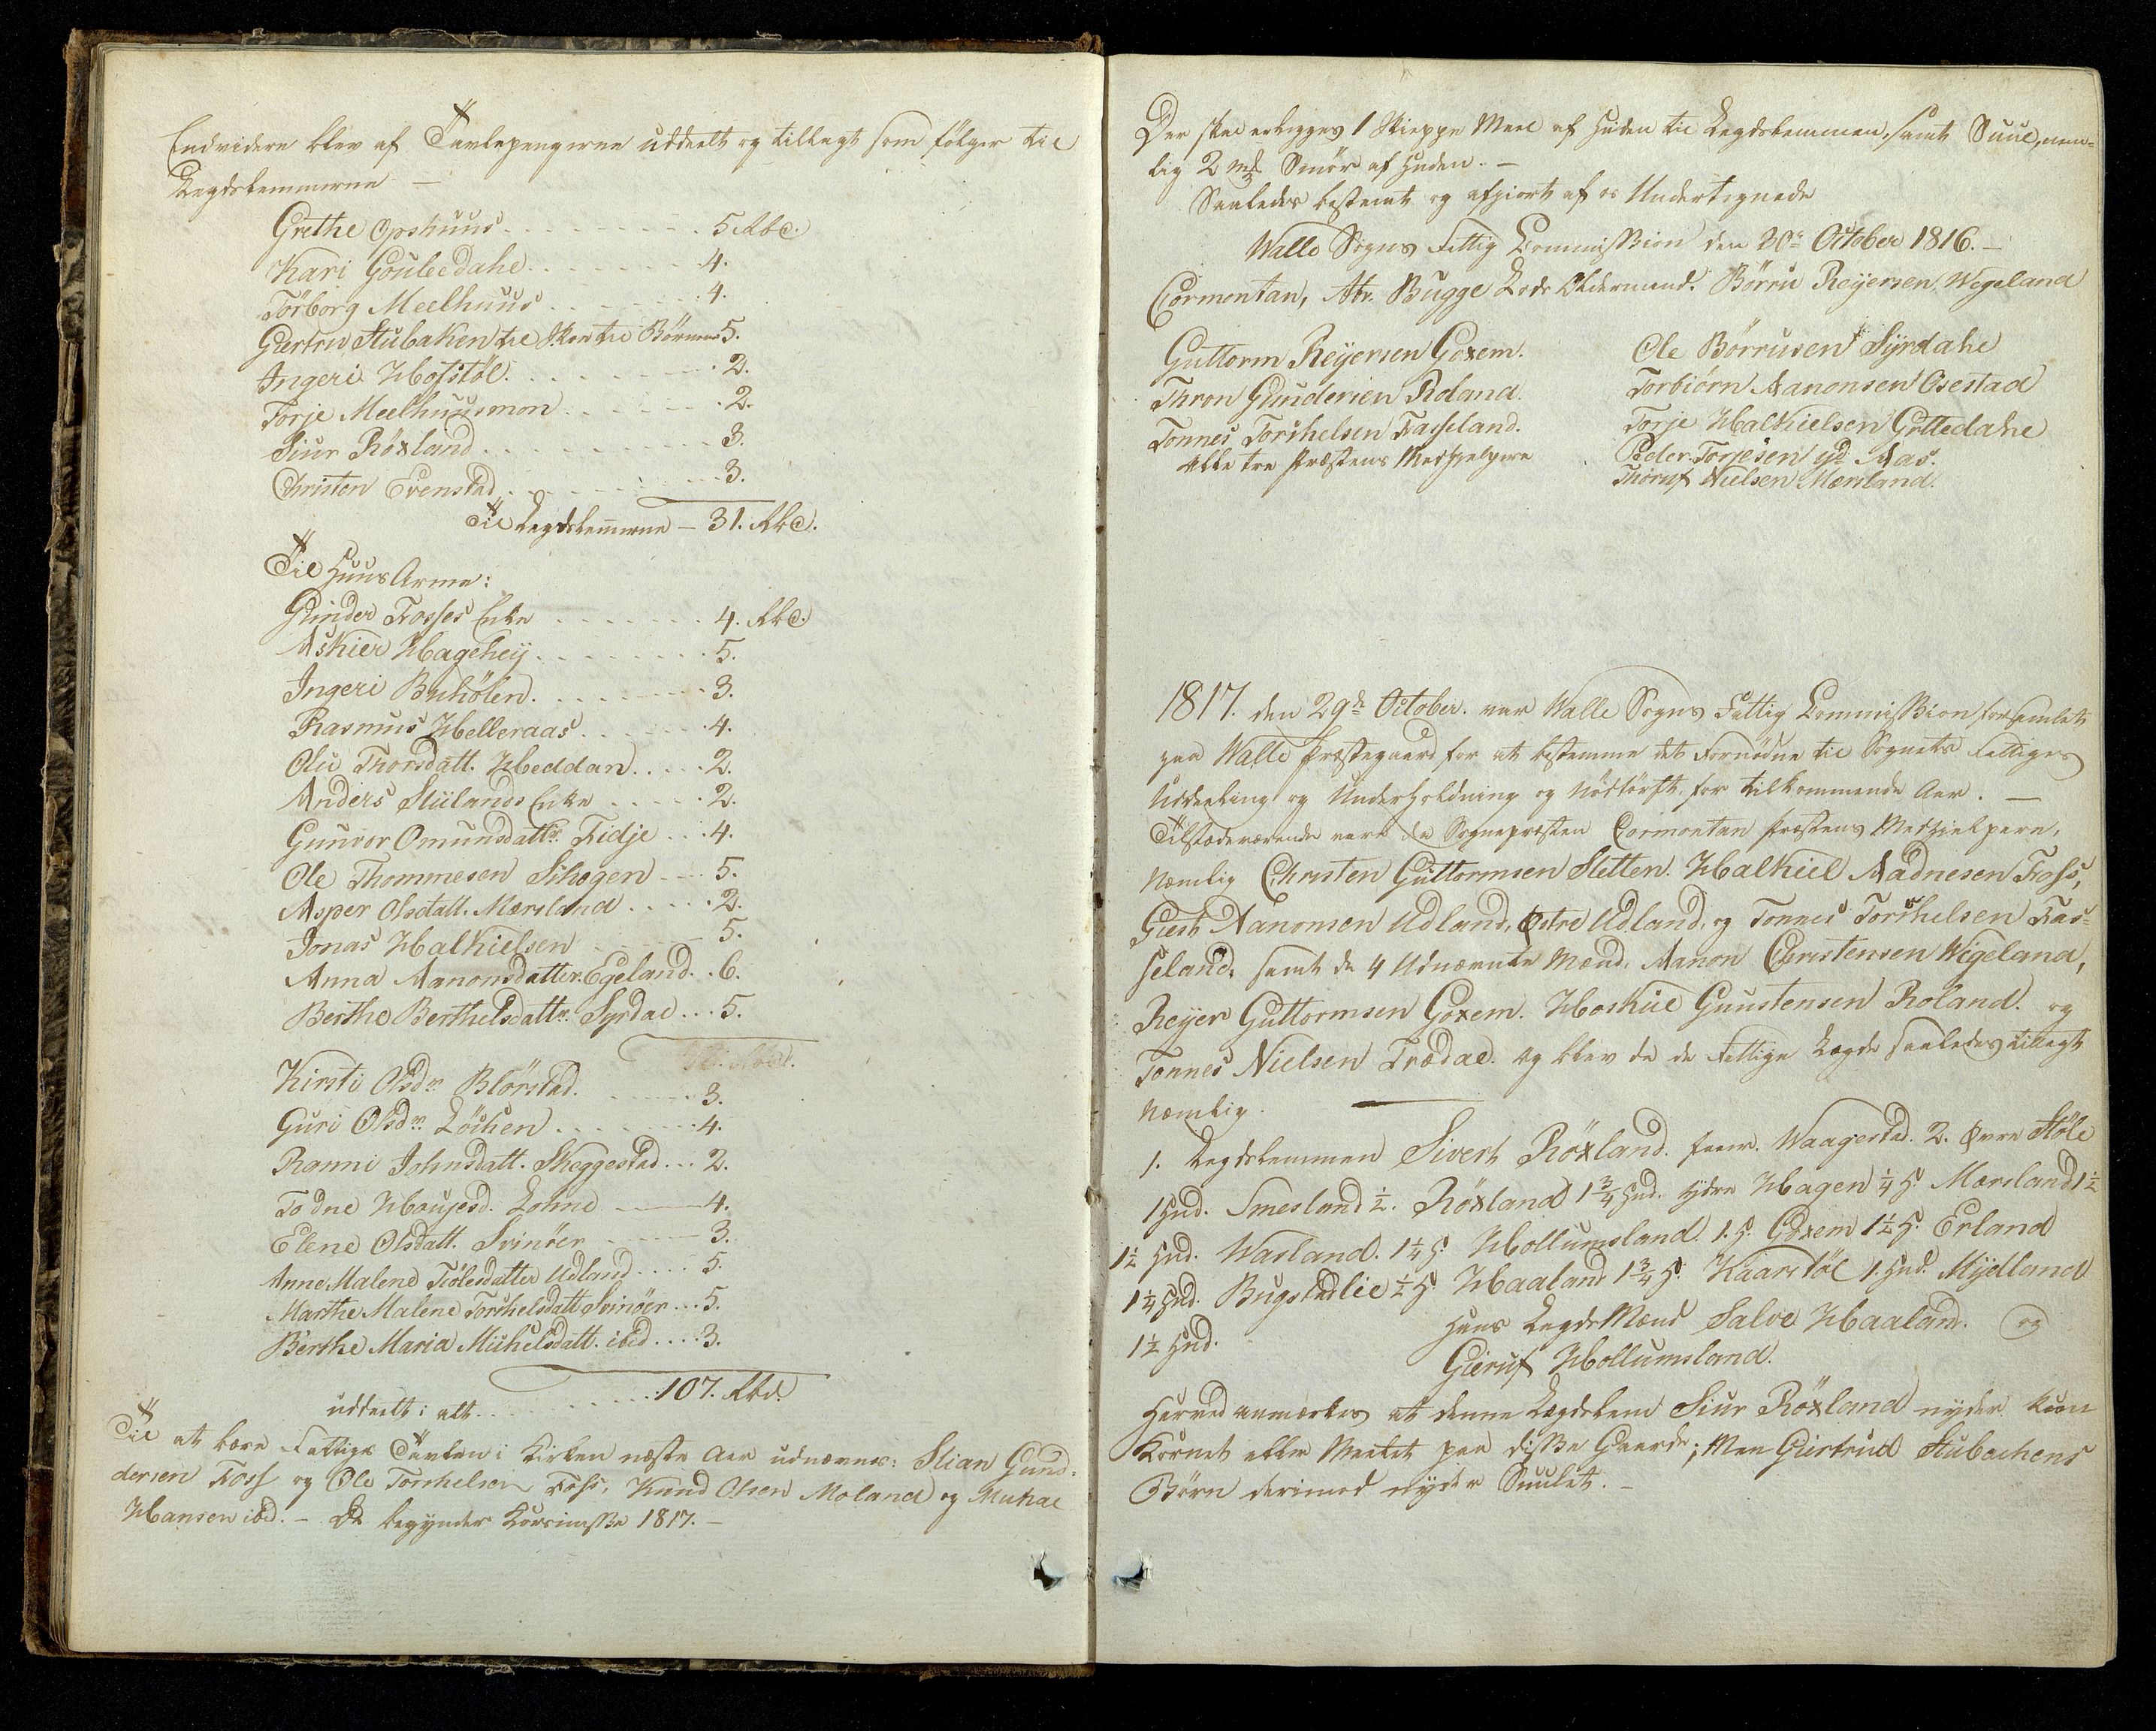 Endvidere blev af Tavlepengerne uddeelt og tillagt som følger til
Legdslemmerne —
Grethe Opshuus . . . 5 Rbd.
Kari Goulledahl . . . 4.
Torborg Meelhuus . . . 4.
Giertru Stubaken til Skoe til Børnene 5.
Ingeri Hofstøl . . . 2.
Torje Meelhuusmon . . . 2.
Siur Röxland . . . 3.
Christen Evenstad . . . 3.
Til Legdslemmerne — 31. Rbd.
Til Huus Arme:
Gunder Fosses Enke . . . 4. Rbd.
Askier Hagehej . . . 5.
Ingeri Buhölen . . . 3.
Rasmus Helleraas . . . 4.
Olu Thorsdatt. Heddan . . . 2.
Anders Stulands Enke . . . 2.
Gunvor Omunsdattr. Fidje . . . 4.
Ole Thommesen Sihogen — 5.
Asper Olsdatt. Mæsland . . . 2.
Jonas Halkielsen . . . 5.
Anna Aanonsdatter Egeland . . 6.
Berthe Berthelsdattr. Syrdal . . . 5.
Kirsti Olsdr. Blörstad . . . 3.
Guri Olsdr. Löchen . . . 4.
Ranni Johnsdatt. Skeggestad . . . 2.
Todne Houjesd. Lohne — 4.
Elene Olsdatt. Svinöer — 3.
Anne Malene Tiölesdatter Udland . . . 5.
Marthe Malene Torkelsdatt Svinöer . . . 5.
Berthe Maria Michelsdatt. ibid . . . 3.
uddeelt i alt . . . 107. Rbd.
Til at bære Fattige Tavlen i Kirken næste Aar udnævnes: Stian Gund-
dersen Foss og Ole Torkelsen Foss, Knud Olsen Moland og Michal
Hansen ibid. — De begynder Korsmisse 1817. —
Der skal erlægges 1 Skieppe Meel af Huden til Legdslemmen, samt Suul, nem-
lig 2 mk Smör af Huden. —
Saaledes bestemt og afgiort af os Undertegnede
Walle Sogns Fattig Commission den 30te October 1816. —
Cormontan, Abr. Bugge Lods Oldermand. Börru Reyersen Wigeland
Guttorm Reyersen Goxem.
Ole Börrusen Syrdahl
Thron Gundersen Roland.
Torbiörn Aanonsen Osestad
Tonnes Torkelsen Fasseland.
Torje Halkielsen Gittedahl
Alle tre Præstens Medhielpere
Peder Torjesen yd. Aas.
Thoruf Nielsen Mæsland.
1817. den 29de October. var Walle Sogns Fattig Commission forsamlet
paa Walle Præstegaard for at bestemme det Fornödne til Sognets Fattiges
Uddeeling og Underholdning og Nödtörft for tilkommende Aar. —
Tilstædeværende vare da Sognepræsten Cormontan Præstens Medhielpere,
nemlig Christen Guttormsen Sletten. Halkiel Aadnesen Foss,
Giest Aanonsen Udland, Östre Udland, og Tonnes Torkelsen Fas-
seland, samt de 4 Udnævnte Mænd. Aanon Christensen Wigeland,
Reyer Guttormsen Goxem. Hoskul Gunstensen Roland. og
Tonnes Nielsen Trædal. og blev da de Fattige Lægde saaledes tillagt
nemlig.
1. Legdslemmen Sivert Röxland. faaer. Waagestad. 2. Övre Stöle
1 Hud. Smesland ½. Röxland 1¾ Hud. ydre Hagen ¼ H. Mæsland 1½
1½ Hud. Wasland. 1¼ H. Hollumsland 1. H. Goxem 1½ H. Erland
1¼ Hud. Bugstadlie ½ H. Haaland 1¾ H. Kaarstöl 1. Hud. Mydland
1½ Hud.
Hans Legds Mænd Salve Haaland. og
Gieruf Hollumsland.
Herved anmærkes at denne Lægdslem Siur Röxland nyder kun
Kornet eller Meelet paa disse Gaarde; Men Giertrud Stubachens
Börn derimod nyder Suulet. —